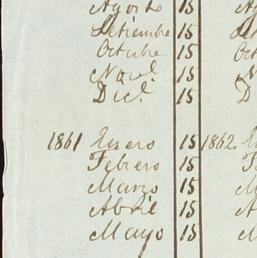 Agosto 15 Ag
Setiembre 15 Se
Octubre 15 Oc
Nove 15 N
Dice 15 D
1861 Enero 15 1862. E
Febrero 15 F
Marzo 15 M
Abril 15 A
Mayo 15 M